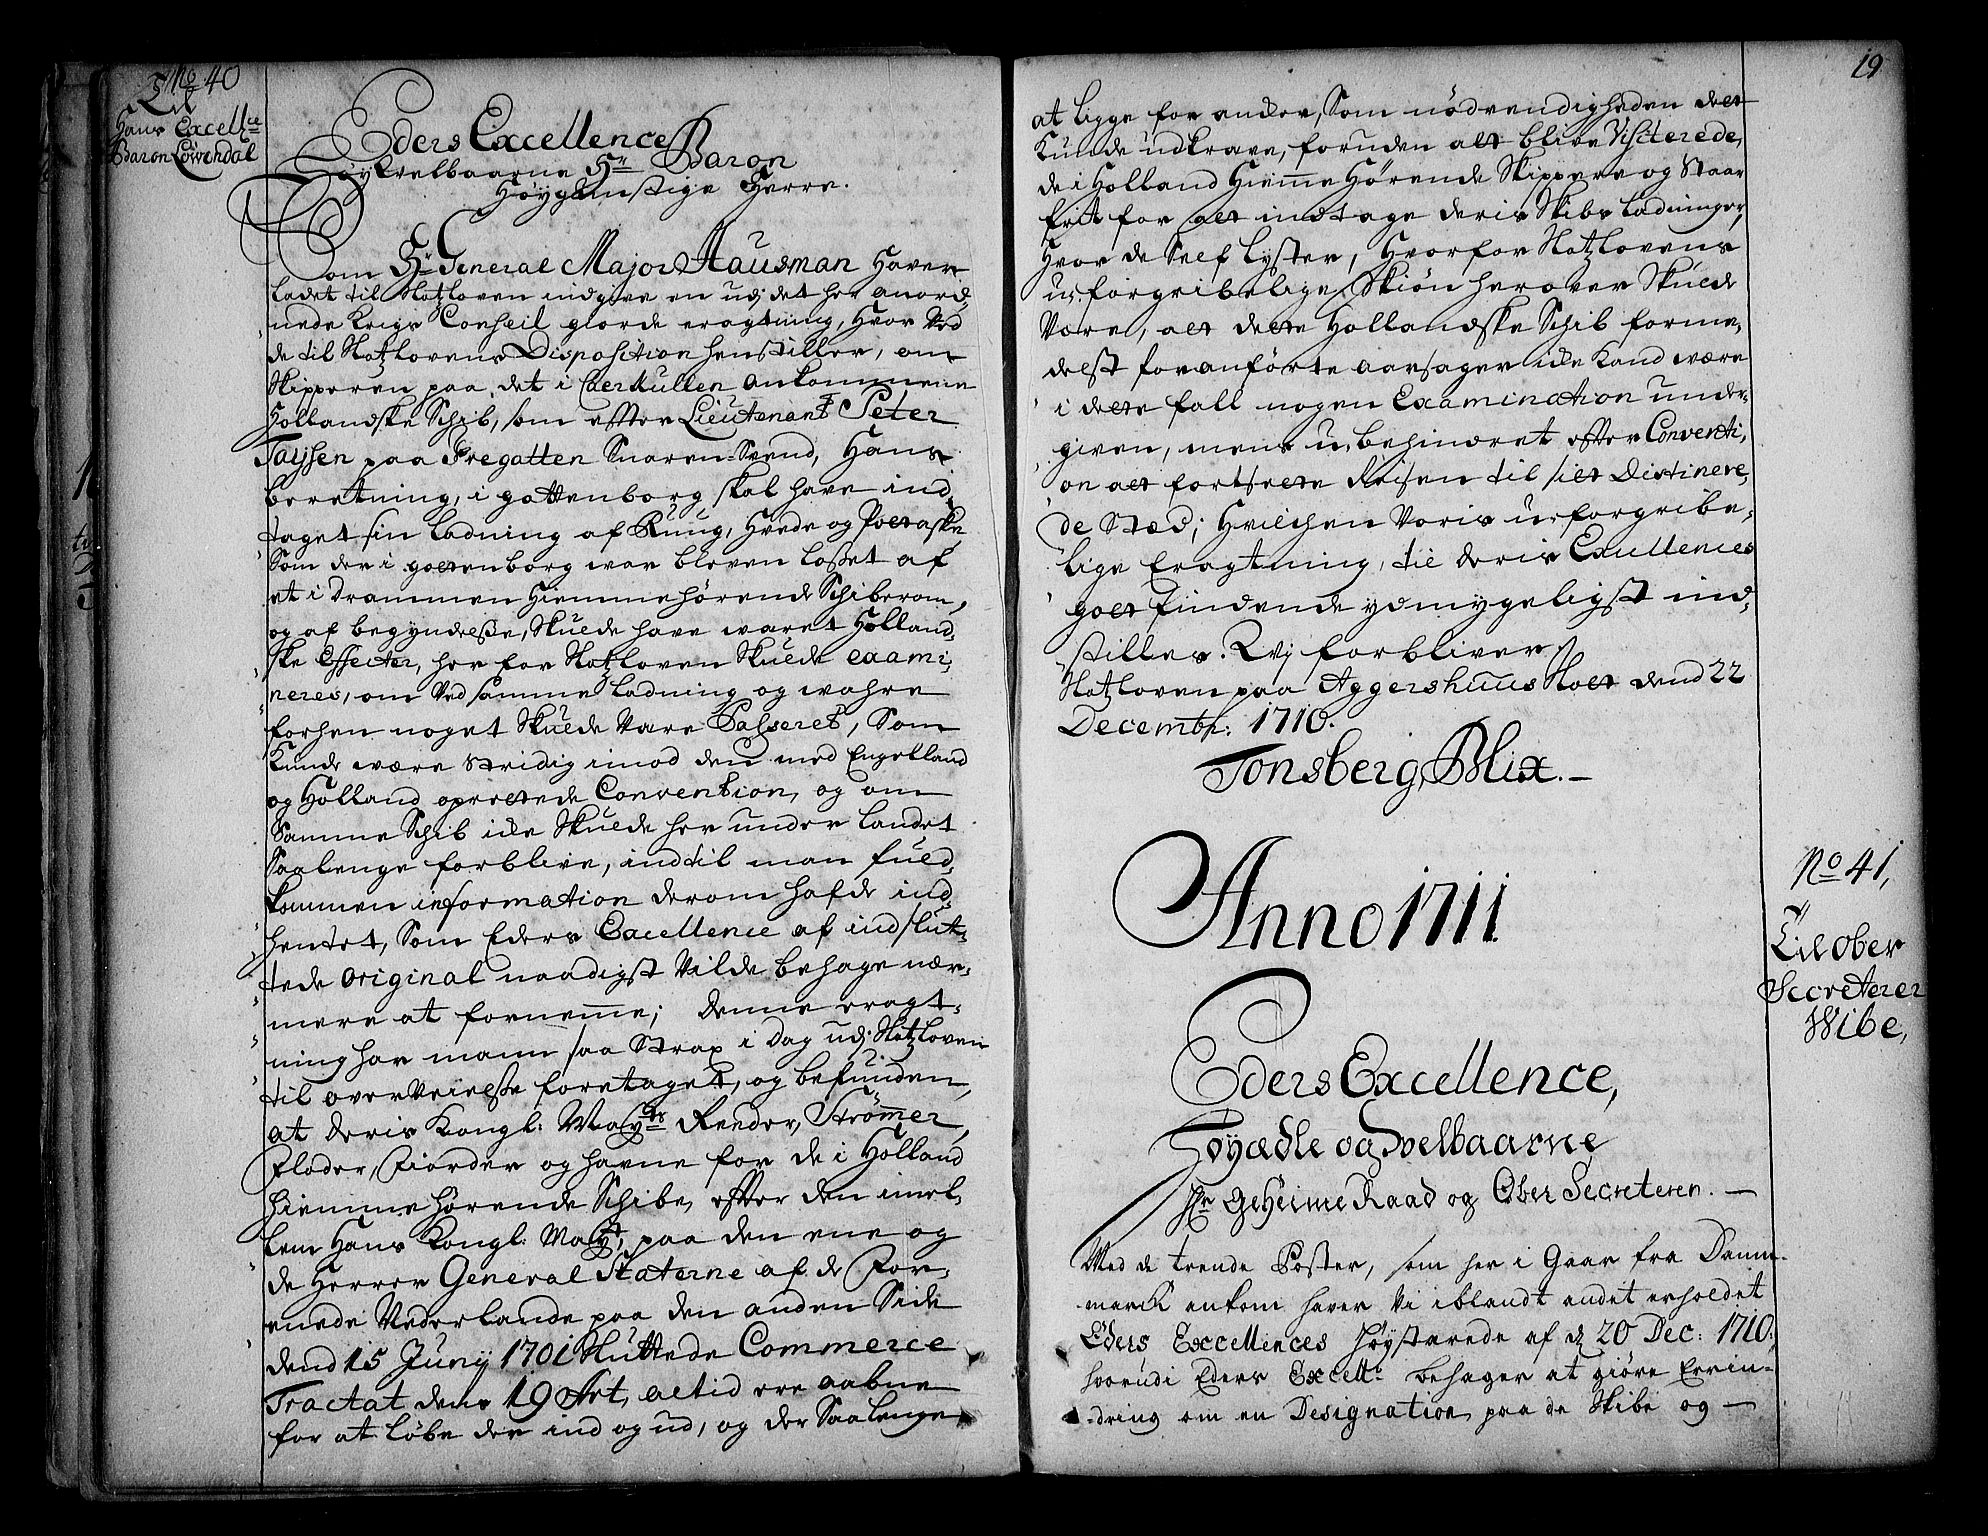 No 40
Til
Hans Excellce
Baron Löwendal
Eders Excellence
Höy Velbaarne Hr Baron
Höygunstige Herre.
Som Hr General Major Hausman haver
ladet til Slotzloven indgive en udj det her anord,
nede Krigs Conseil giorde eragtning, hvor ved
de til Slotzlovens Disposition henstiller, om
Skipperen paa det i Caerkullen ankommene
Hollandske Schib, som efter Lieutenant Peter
Taysen paa Fregatten Snaren-Svend, Hans
beretning, i gottenborg skal have ind,
taget sin ladning af Ruug, Hvede og Potaske,
Som der i gottenborg war bleven losset af
et i Drammen Hiemmehörende Schiberom,
og af begyndelße, Skulde have waret Holland,
ske Effecter, her for Slotzloven Skulde exami,
neres, om ved samme ladning og wahre
forhen noget Skulde være Passeret, Som
Kunde være stridig imod den med Engelland
og Holland oprettede Convention, og om
Samme Schib icke Skulde her under landet
Saalenge forblive, indtil man fuld,
kommen information derom hafde ind,
hentet, Som Eders Excellence af indslut,
tede original naadigst vilde behage nær,
mere at fornemme; Denne eragt,
ning har mann saa strax i Dag udj Slotzloven
til overveielße foretaget, og befunden,
at Deris Kongl: Maytz Reuder, Strömmer,
Floder, Fiorder og havne for de i Holland
hiemme hörende Schibe, efter den imel,
lem Hans Kongl: Mayt, paa den ene og
de Herrer General Staterne af de For,
enede Nederlande paa den anden Side
dend 15 Juny 1701 Sluttede Commerce
Tractat dens 19 Art, altid ere aabne
for at löbe der ind og ud, og der Saalenge
19
at ligge for ancker, Som nödvendigheden det
Kunde udkrave, foruden alt blive Visiterede,
de i Holland Hiemme Hörende Skippere og Staar
frit for at indtage deris Skibs ladninger,
Hvor de Self lyster, Hvorfor Slotzlovens
u-forgribelige Skiön herover Skulde
Være, at dette Hollandske Schib forme,
delst foranförte aarsager icke Kand være
i dette fall nogen Examination under,
given, mens u-behindret efter Conventi,
on at fortsette Reisen til sit Distinere,
de Stæd; Hvilchen Voris u-forgribe,
lige Eragtning, til deris Excellences
gott findende ydmygeligst ind,
stilles. Wj forbliver
Slotzloven paa Aggershuus Slott dend 22
Decembr: 1710.
Tonsberg, Blix.
Anno 1711.
No 41,
Til Ober
Secreterer
Wibe,
Eders Excellence,
Höyædle og Velbaarne
Hr Geheime Raad og Ober Secreteren.
Med de trende Poster, som her i Gaar fra Dann-
marck ankom haver Vi iblandt andet erholdet
Eders Excellences Höystærede af d 20 Dec: 1710:
hvorudi Eders Excellce behager at giöre Errin-
-dring om en Designation paa de Skibe og